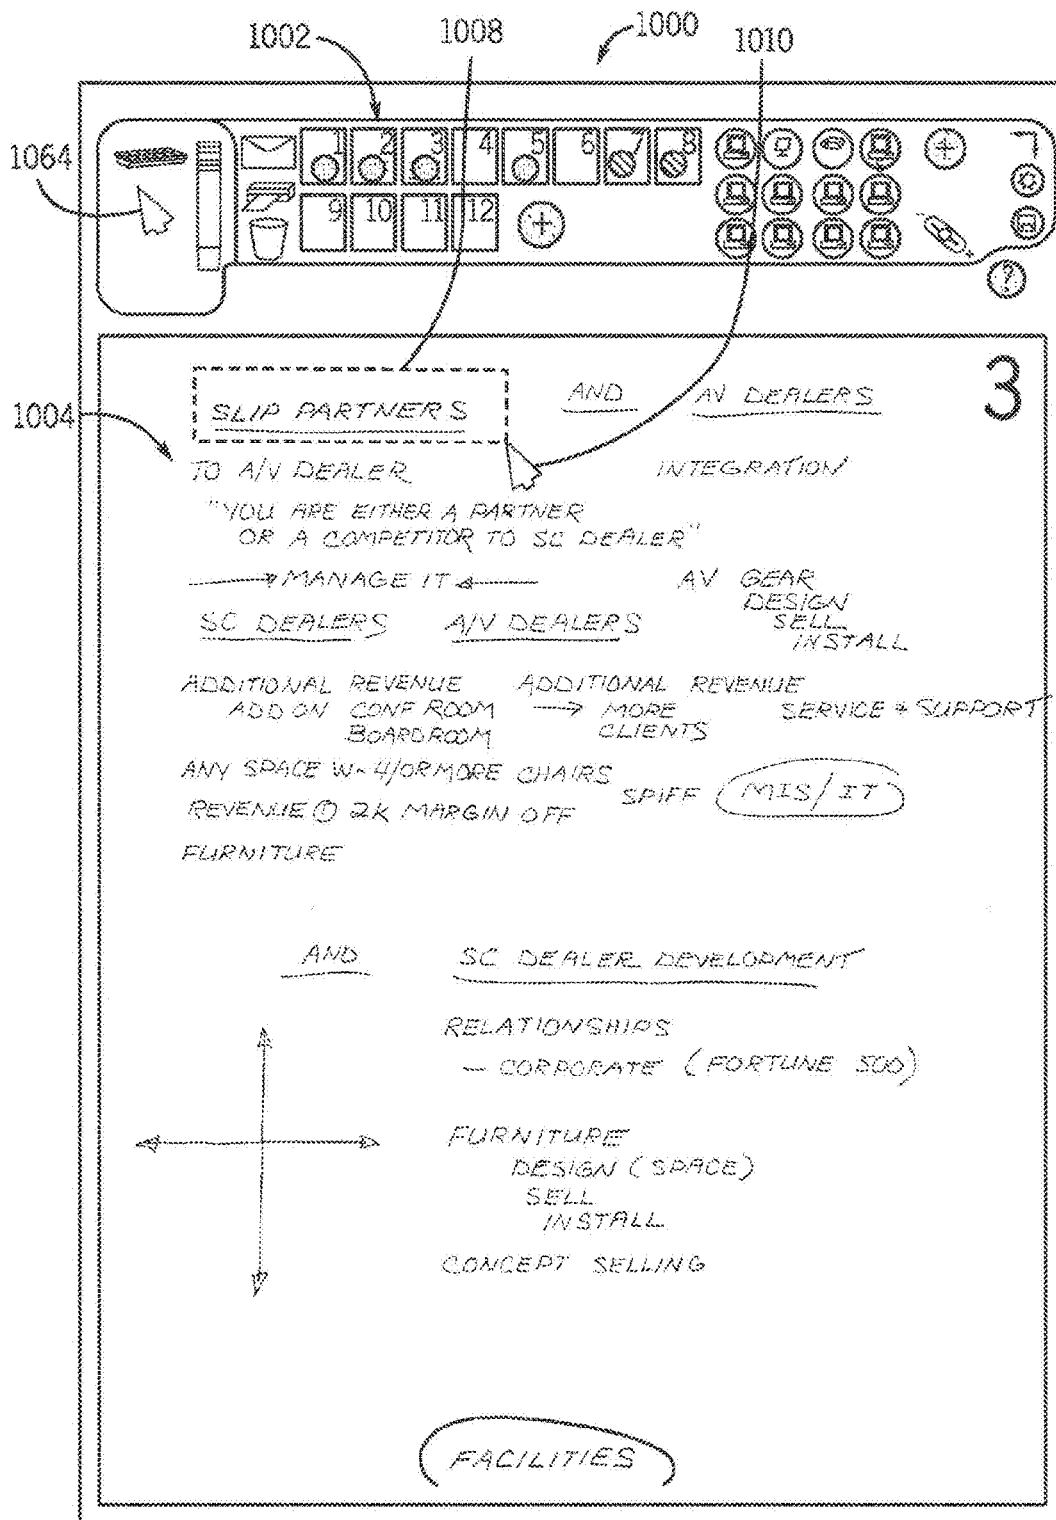 1002
1008
1000
1010
1064
1 2 3 4 5 6 7 8
9 10 11 12
?
3
1004
SLIP PARTNERS AND AV DEALERS
TO A/V DEALER INTEGRATION
"YOU ARE EITHER A PARTNER
OR A COMPETITOR TO SC DEALER"
MANAGE IT AV GEAR
DESIGN
SC DEALERS A/V DEALERS SELL
INSTALL
ADDITIONAL REVENUE ADDITIONAL REVENUE
ADD ON CONF ROOM → MORE SERVICE + SUPPORT
BOARDROOM CLIENTS
ANY SPACE W- 4/OR MORE CHAIRS
SPIFF MIS/IT
REVENUE ① 2K MARGIN OFF
FURNITURE
AND SC DEALER DEVELOPMENT
RELATIONSHIPS
— CORPORATE (FORTUNE 500)
FURNITURE
DESIGN (SPACE)
SELL
INSTALL
CONCEPT SELLING
FACILITIES